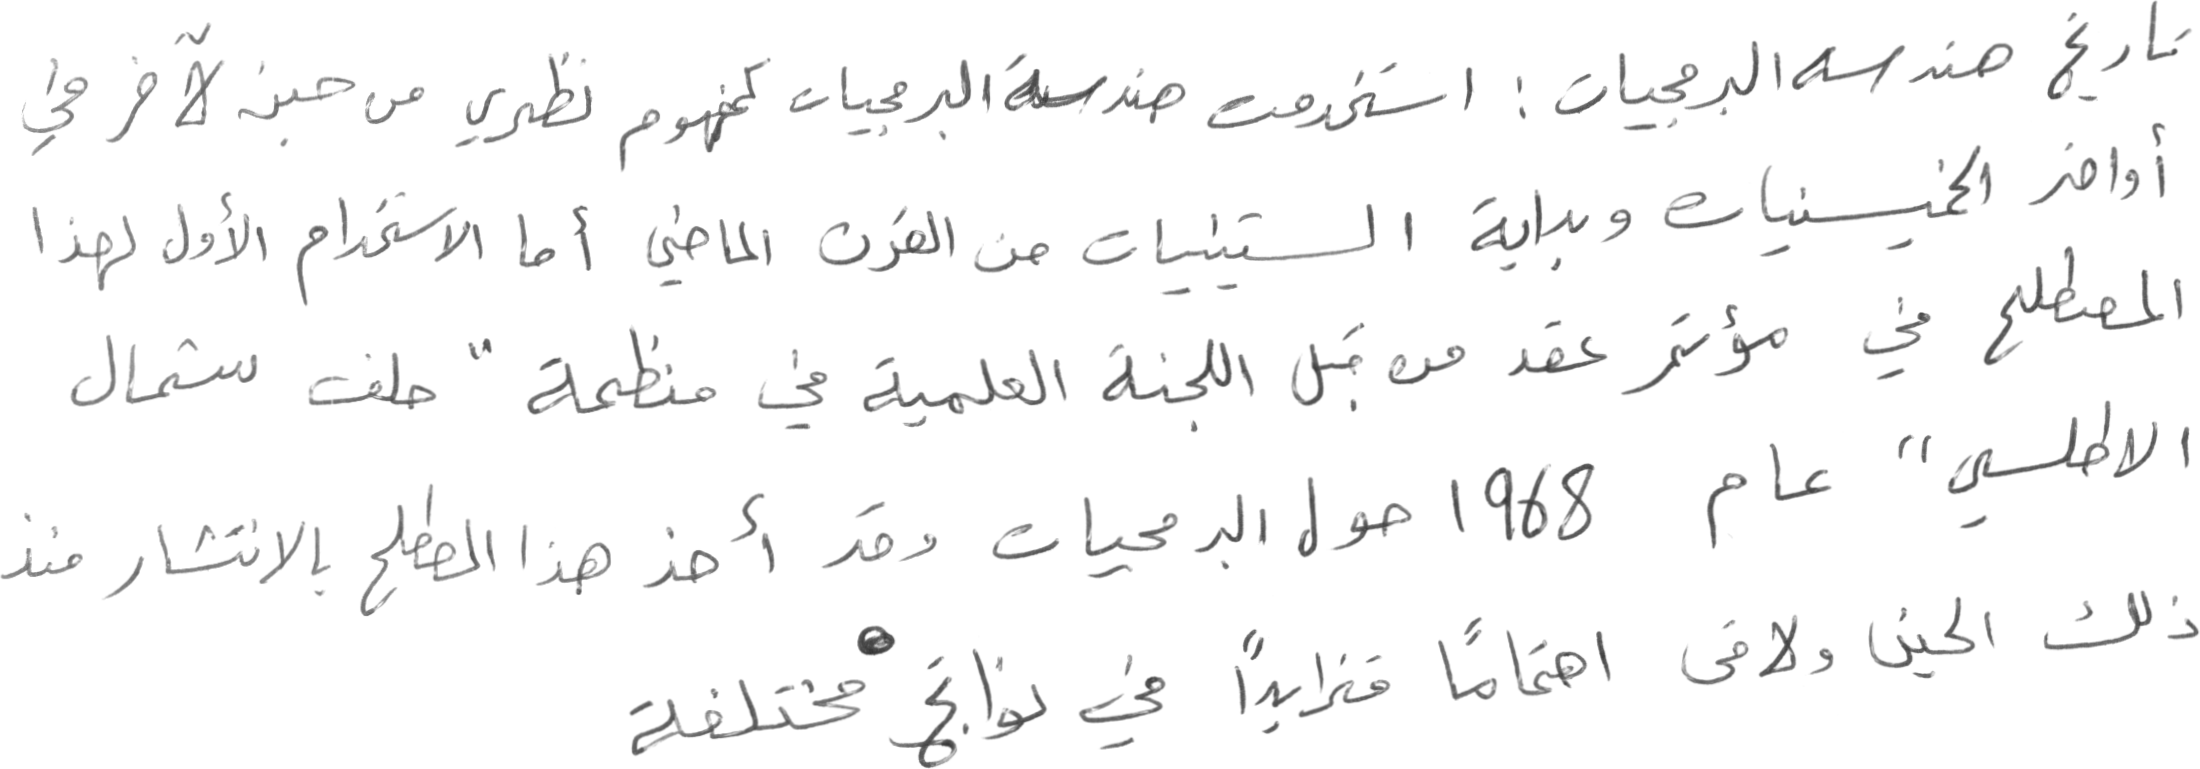 تاريخ هندسه البرمجيات : استخدمت هندسة البرمجيات كمفهوم نظري من حين لآخر في
أواخر الخمسينيات وبداية الستينيات من القرن الماضي أما الاستخدام الأول لهذا
المصطلح في مؤتمر عقد من قبل اللجنة العلمية في منظمة " حلف شمال
الاطلسي " عام 1968 حول البرمجيات وقد أخذ هذا المصطلح بالانتشار منذ
ذلك الحين ولاقى اهتمامًا متزايدًا في نواتج مختلفة